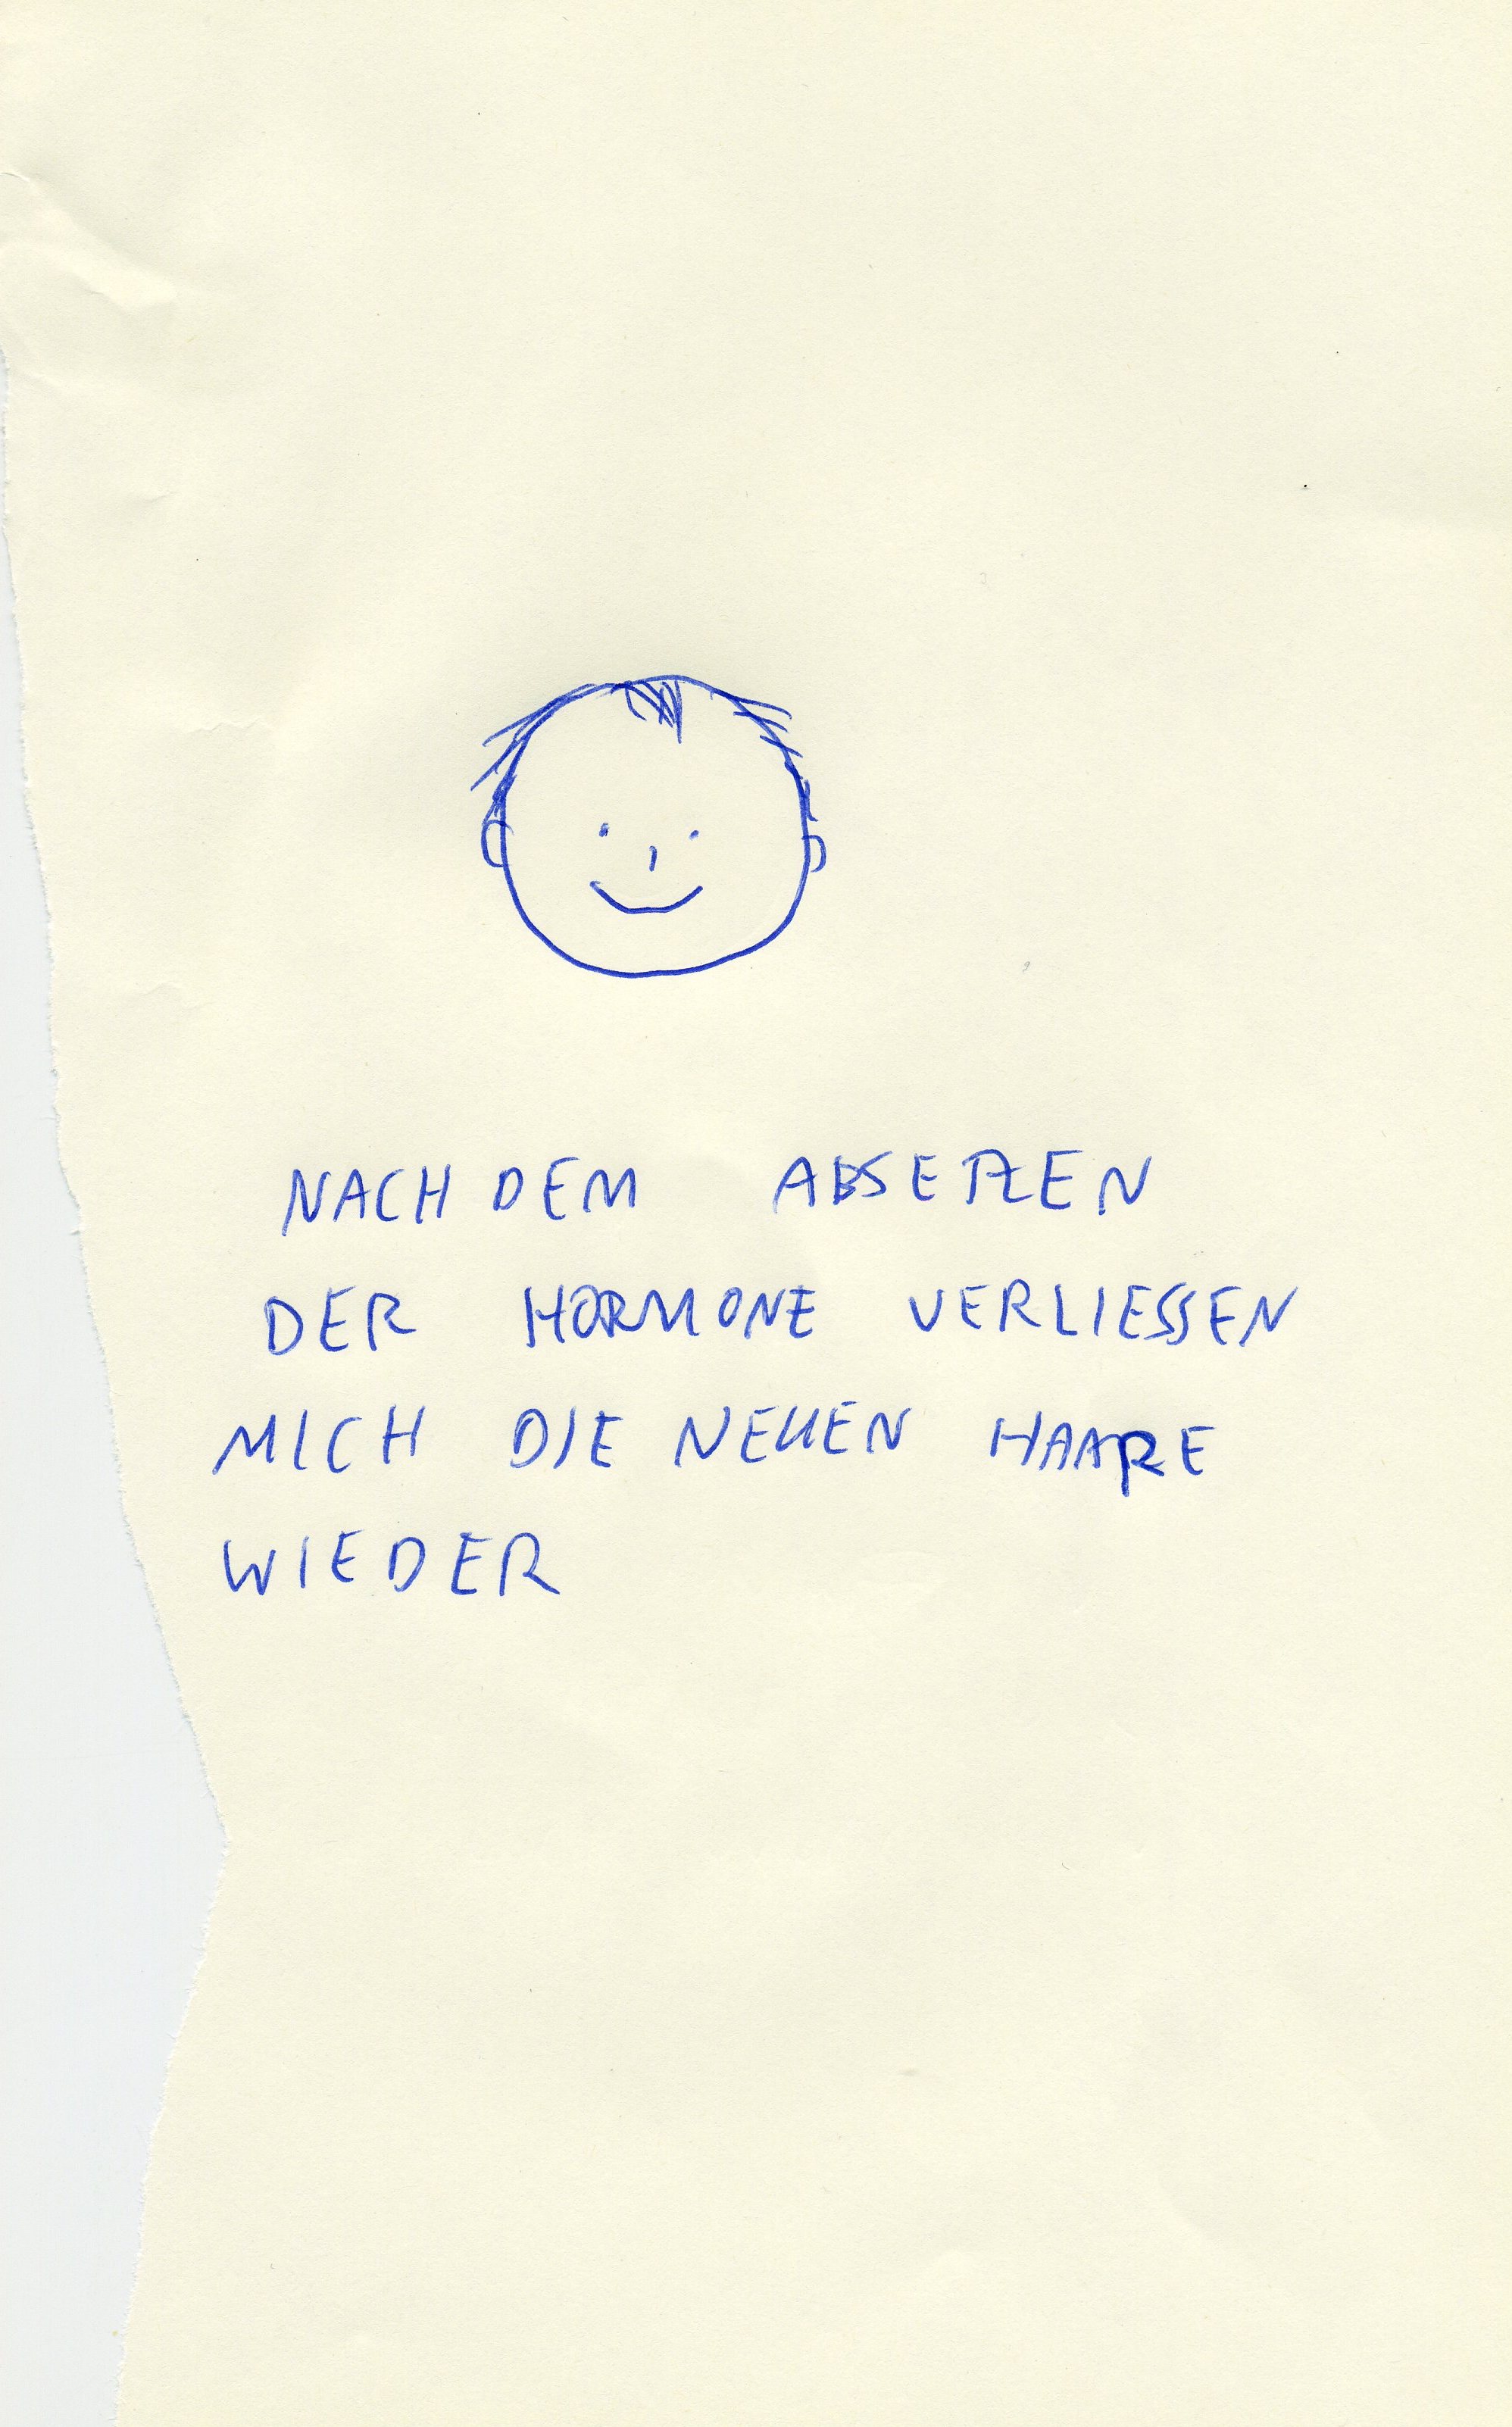 NACH DEM ABSETZEN
DER HORMONE VERLIESSEN
MICH DIE NEUEN HAARE
WIEDER